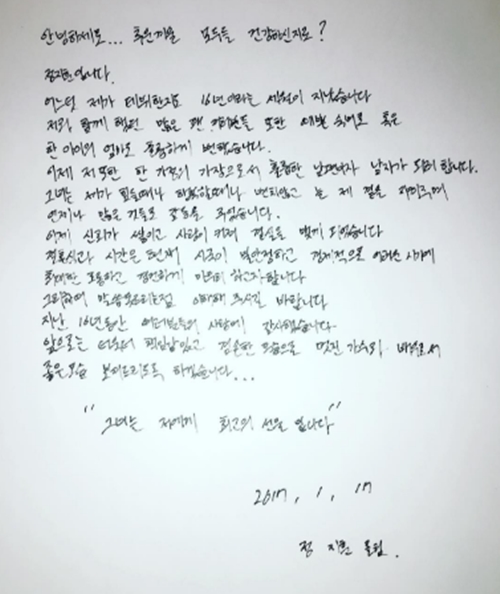 안녕하세요... 추운겨울 모두들 건강하신지요?
정지훈입니다.
어느덧 제가 데뷔한지도 16년이라는 세월이 지났습니다
저와 함께 했던 많은 팬 여러분들 또한 이젠 숙녀로 혹은
한 아이의 엄마로 훌륭하게 변했습니다.
이제 저 또한 한 가정의 가장으로서 훌륭한 남편이자 남자가 되려 합니다.
그녀는 제가 힘들때나 행복할때나 변치않고 늘 제 곁을 지켜주며
언제나 많은 것들로 감동을 주었습니다.
이제 신뢰가 쌓이고 사랑이 커져 결실을 맺게 되었습니다
결혼식과 시간은 현재 시국이 불안정하고 경제적으로 어려운 시기에
최대한 조용하고 경건하게 치르려 하고자합니다
그리하여 말씀못드리는점 이해해 주시길 바랍니다
지난 16년동안 여러분들의 사랑에 감사했습니다
앞으로는 더욱더 책임감있고 겸손한 모습으로 멋진 가수와 배우로서
좋은모습 보여드리도록 하겠습니다...
"그녀는 저에게 최고의 선물 입니다"
2017. 1. 17
정 지훈 올림.